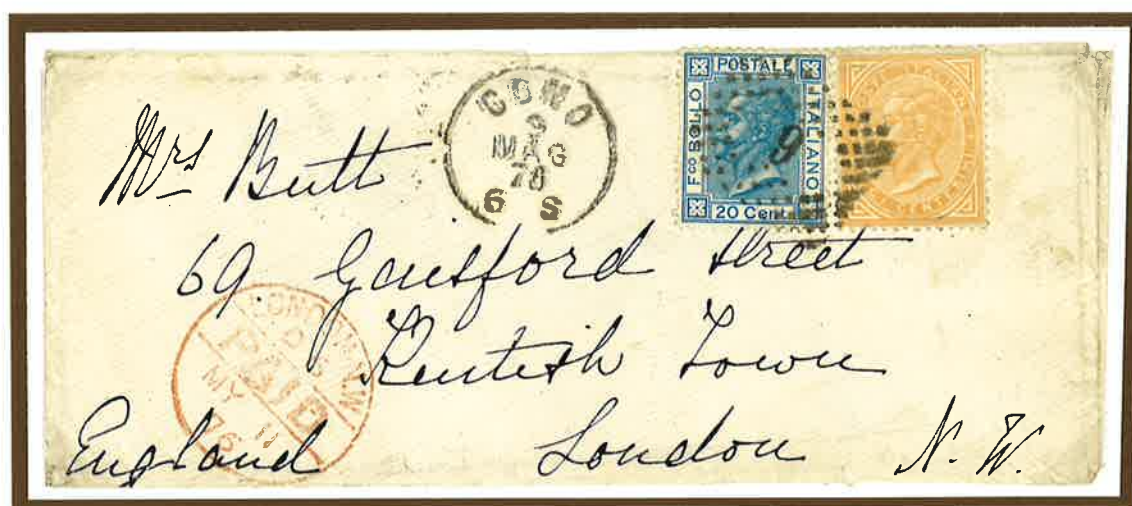 COMO
9
MAG
76
6 S
POSTALE
Fco BOLLO
ITALIANO
20 Cent
9
Mrs Butt
69 Gaisford Street
Kentish Town
London N.W.
England
LONDON N.W
PAID
MY 11
76